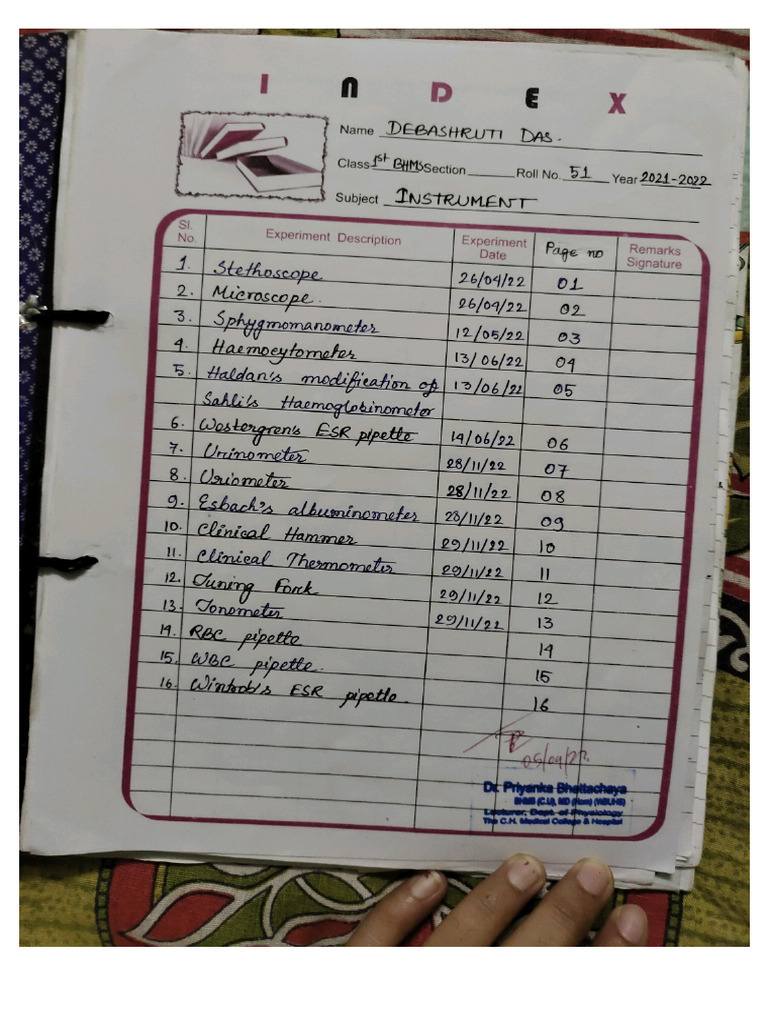 INDEX
Name DEBASHRUTI DAS.
Class 1st BHMS Section Roll No. 51 Year 2021-2022
Subject INSTRUMENT
Sl. No. Experiment Description Experiment Date Page no Remarks Signature
1. Stethoscope 26/04/22 01
2. Microscope. 26/04/22 02
3. Sphygmomanometer 12/05/22 03
4. Haemocytometer 13/06/22 04
5. Haldan's modification of 13/06/22 05
Sahli's Haemoglobinometer
6. Westergren's ESR pipette 14/06/22 06
7. Urinometer 28/11/22 07
8. Uriometer 28/11/22 08
9. Esbach's albuminometer 28/11/22 09
10. Clinical Hammer 29/11/22 10
11. Clinical Thermometer 29/11/22 11
12. Tuning Forck 29/11/22 12
13. Tonometer 29/11/22 13
14. RBC pipette 14
15. WBC pipette. 15
16. Wintrob's ESR pipette. 16
Dr. Priyanka Bhattachaya
BHMS (C.U), MD (Hom) (WBUHS)
Lecturer, Dept. of Physiology
The C.H. Medical College & Hospital